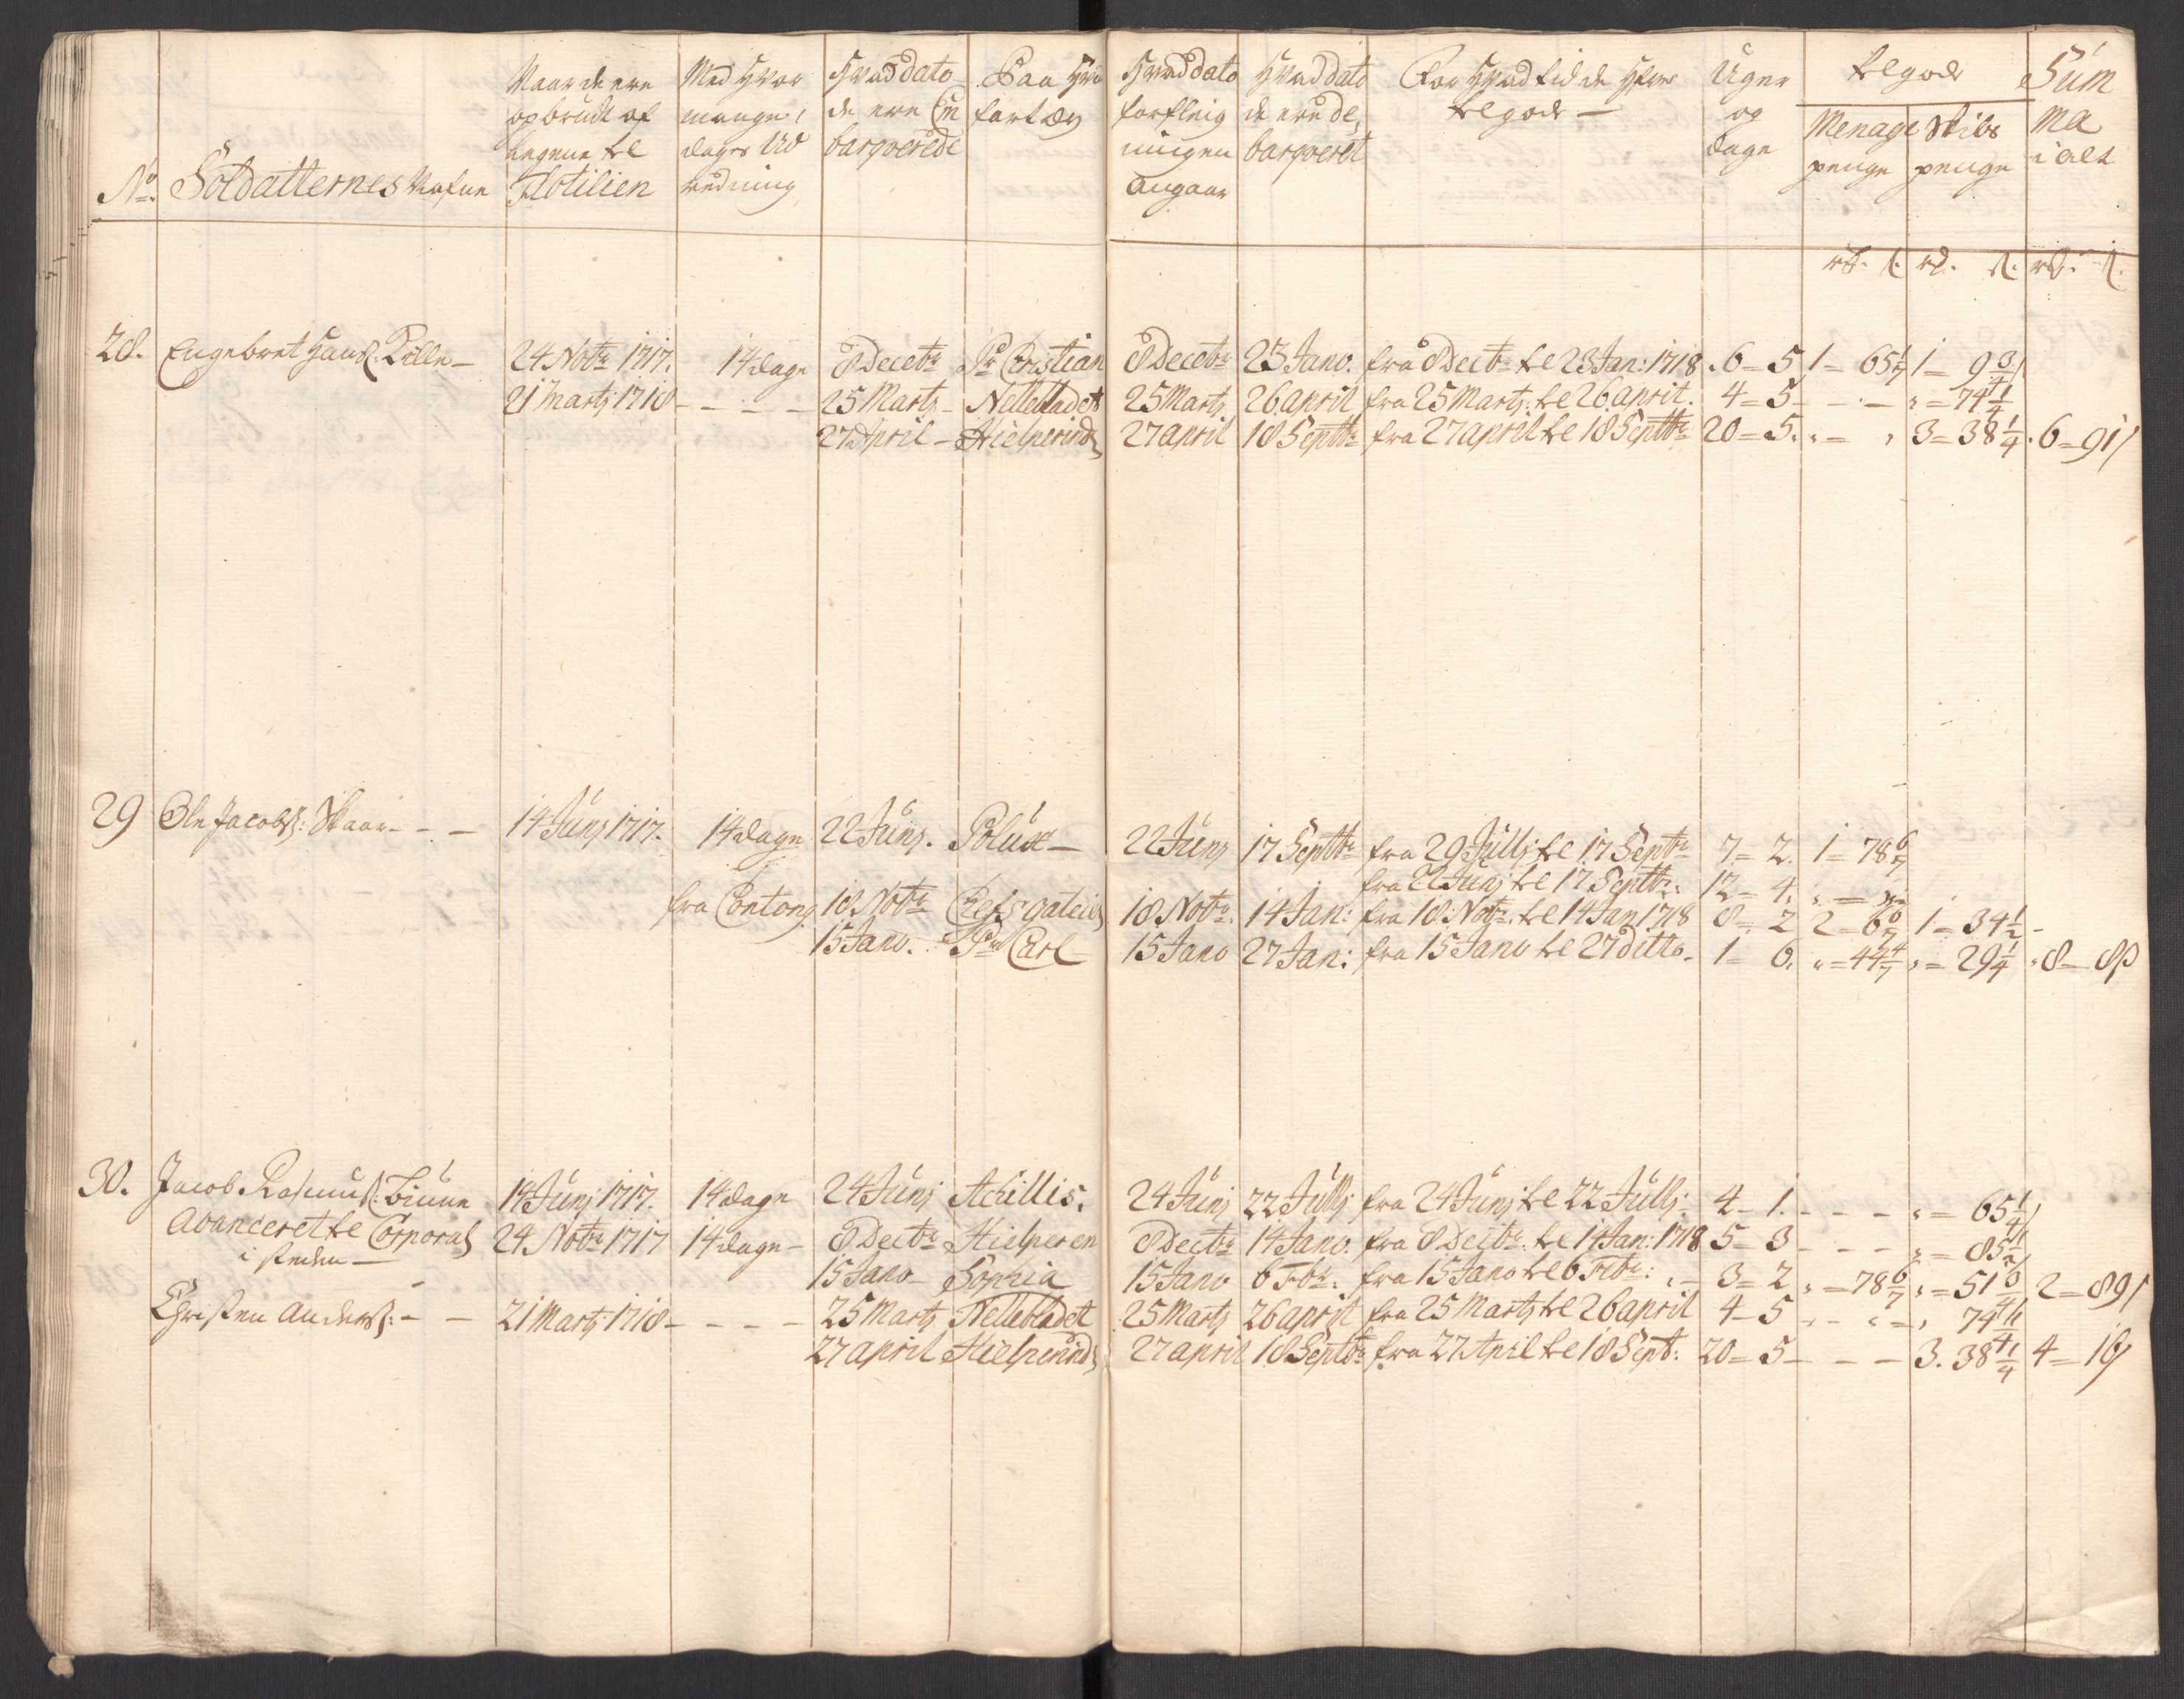 No. Soldatternes Nafne
Naar de ere
opbrudt af
Legene til
Flotilien
Med Hvor
mange
dages Ud
redning
Hvad dato
de ere Em
barqverede
Paa Hva
fartøy
Hvad dato
forpleig
ningen
Angaar
Hvad dato
de ere de,
barqveret
For Hvad tid de Hafver
tilgode —
Uger
og
dage
tilgode
Menage
penge
Skibs
penge
Sum
ma
i alt
rd. s. rd. s. rd. s.
28. Engebret Hans: — 24 Novbr 1717. 14 dage 8 Decebr Pr Christian 8 Decebr 23 Janv. fra 8 Decbr til 23 Jan: 1718. 6=5 1= 65 1/7 1= 9 3/4
21 Martz 1718 - - - - 25 Martz - Nellebladet 25 Martz 26 april fra 25 Martz: til 26 april. 4=5 - - - „= 74 1/4
27 April - Hielperinde 27 april 18 Septbr fra 27 april til 18 Septbr 20=5. „= „ 3=38 1/4. 6=91
29 Ole Jacobs: Skaar - - - 14 Junj 1717. 14 dage 22 Junj. Polux - 22 Junj 17 Septbr fra 29 Jullj til 17 Septbr 7=2. 1=78 6/7
fra 22 Junj til 17 Septbr: 12=4. „=
fra Contong. 18 Novbr 18 Novbr. 14 Jan: fra 18 Novbr. til 14 Jan 1718 8=2 2=6 6/7 1=34 1/2 -
15 Janv. Pr Carl 15 Janv 27 Jan: fra 15 Janv til 27 ditto. 1=6. „=44 4/7 „=29 1/4 8=8
30. Jacob Rasmus: 14 Junj 1717. 14 dage 24 Junj Achillis. 24 Junj 22 Jullj fra 24 Junj til 22 Jullj 4-1. - - - „= 65 1/4
Avanceret til Corporal 24 Novbr 1717 14 dage - 8 Decbr Hielperen 8 Decbr 14 Janv. fra 8 Decbr. til 14 Jan: 1718 5=3 - - - „= 85 1/2
i steden —
15 Janv - Sophia 15 Janv 6 Febr: fra 15 Janv til 6 Febr: „- 3=2 „=78 6/7 „=51 2=89
Christen Anders: - - 21 Martz 1718 - - - - 25 Martz Nellebladet 25 Martz 26 april fra 25 Martz til 26 april 4-5 „- „= „ 74 1/4
27 april Hielperinde 27 april 18 Septbr fra 27 April til 18 Sept: 20=5 - - - 3. 38 1/4 4=16